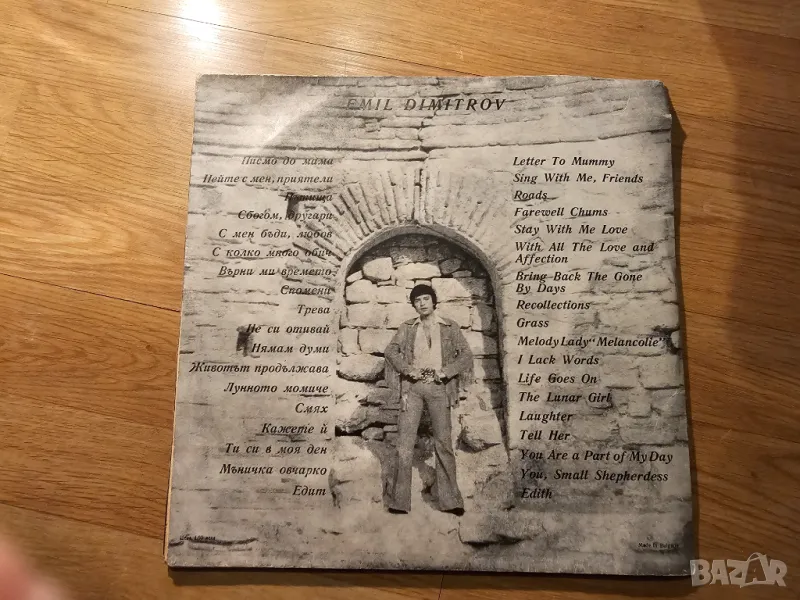 EMIL DIMITROV
Писмо до мама
Пейте с мен, приятели
Пътища
Сбогом, другари
С мен бъди, любов
С колко много обич
Върни ми времето
Спомени
Трева
Не си отивай
Нямам думи
Животът продължава
Лунното момиче
Смях
Кажете ѝ
Ти си в моя ден
Мъничка овчарко
Едит
Letter To Mummy
Sing With Me, Friends
Roads
Farewell Chums
Stay With Me Love
With All The Love and
Affection
Bring Back The Gone
By Days
Recollections
Grass
Melody Lady "Melancolie"
I Lack Words
Life Goes On
The Lunar Girl
Laughter
Tell Her
You Are a Part of My Day
You, Small Shepherdess
Edith
Made in Bulgaria
BAZAR